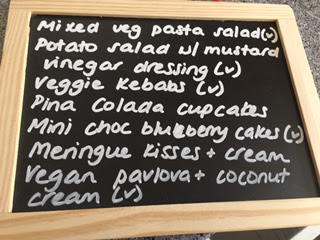 Mixed veg pasta salad(v)
Potato salad w/ mustard
vinegar dressing (v)
Veggie Kebabs (v)
Pina Colada cupcakes
Mini choc blueberry cakes (v)
Meringue Kisses + cream
Vegan pavlova + coconut
cream (v)